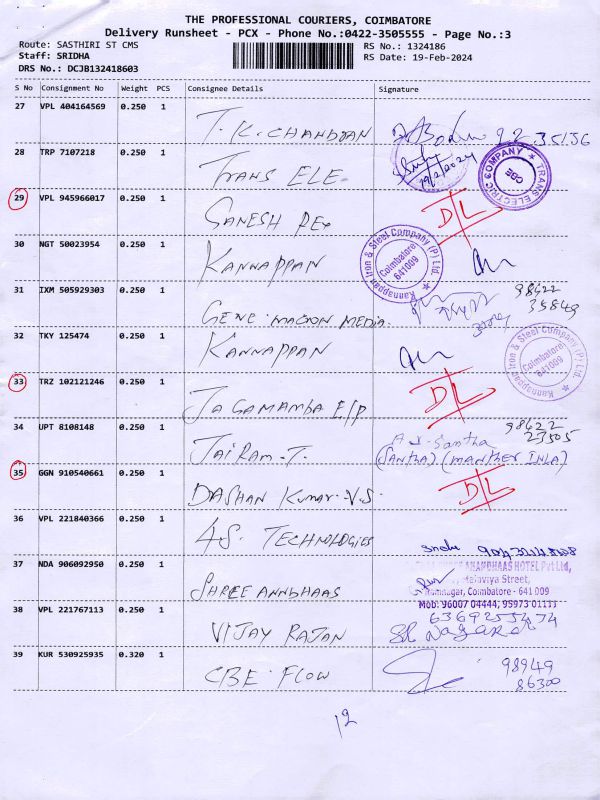 THE PROFESSIONAL COURIERS, COIMBATORE
Delivery Runsheet - PCX - Phone No.:0422-3505555 - Page No.:3
Route: SASTHIRI ST CMS
RS No.: 1324186
Staff: SRIDHA
RS Date: 19-Feb-2024
DRS No.: DCJB132418603
S No Consignment No Weight PCS Consignee Details Signature
27 VPL 404164569 0.250 1
T.K.CHANDRAN
28 TRP 7107218 0.250 1
19/2/2024
TRANS ELECTRIC COMPANY CBE
TRANS ELE
29 VPL 945966017 0.250 1
GANESH REX
D/L
30 NGT 50023954 0.250 1
KANNAPPAN
Kannappan Iron & Steel Company (P) Ltd.
Coimbatore
641009
31 IXM 505929303 0.250 1
98422
35849
GENE MACRON MEDIA.
32 TKY 125474 0.250 1
KANNAPPAN
Kannappan Iron & Steel Company (P) Ltd.
Coimbatore
641009
33 TRZ 102121246 0.250 1
JAGAMAMBA E/P
D/L
34 UPT 8108148 0.250 1
JAIRAM.T.
A.J. Santha
98422
23505
(SANTHA) (MANTHER INLA)
35 GGN 910540661 0.250 1
DASHAN KUMAR.V.S.
D/L
36 VPL 221840366 0.250 1
4.S. TECHNOLOGIES
37 NDA 906092950 0.250 1
SHREE ANNDHAAS
ANANDHAAS HOTEL Pvt Ltd,
Malaviya Street,
Ramnagar, Coimbatore - 641 009
Mob: 96007 04444, 95973 01111
38 VPL 221767113 0.250 1
VIJAY RAJAN
39 KUR 530925935 0.320 1
CBE FLOW
98949
86300
12